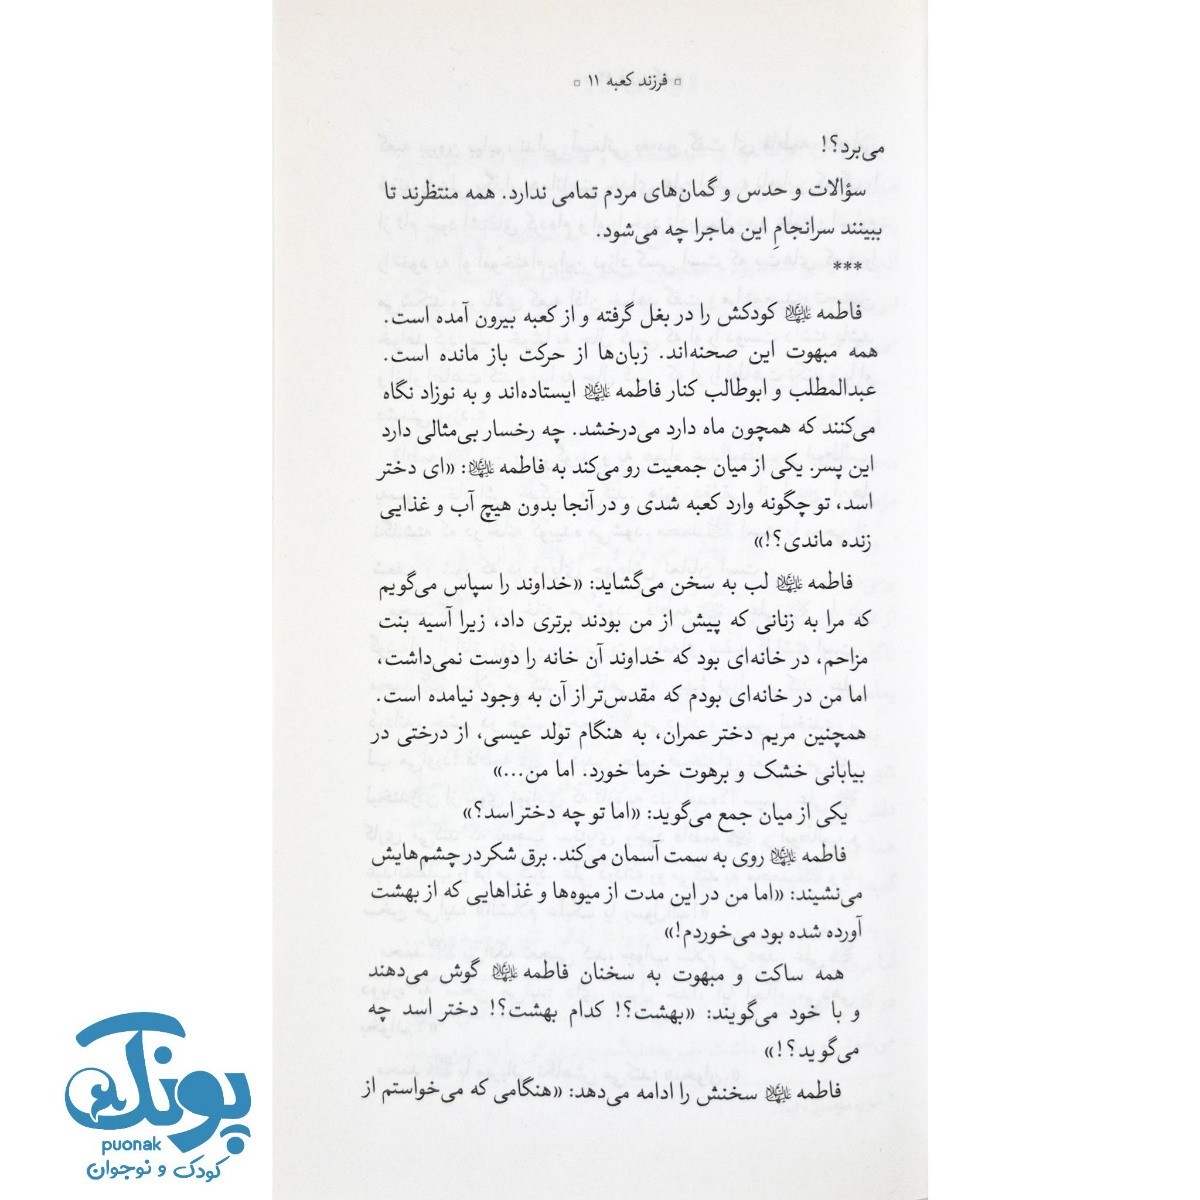 ▫ فرزند کعبه ۱۱ ▫
می‌برد؟!
سؤالات و حدس و گمان‌های مردم تمامی ندارد. همه منتظرند تا
ببینند سرانجامِ این ماجرا چه می‌شود.
***
فاطمه علیهاالسلام کودکش را در بغل گرفته و از کعبه بیرون آمده است.
همه مبهوت این صحنه‌اند. زبان‌ها از حرکت باز مانده است.
عبدالمطلب و ابوطالب کنار فاطمه علیهاالسلام ایستاده‌اند و به نوزاد نگاه
می‌کنند که همچون ماه دارد می‌درخشد. چه رخسار بی‌مثالی دارد
این پسر. یکی از میان جمعیت رو می‌کند به فاطمه علیهاالسلام: «ای دختر
اسد، تو چگونه وارد کعبه شدی و در آنجا بدون هیچ آب و غذایی
زنده ماندی؟!»
فاطمه علیهاالسلام لب به سخن می‌گشاید: «خداوند را سپاس می‌گویم
که مرا به زنانی که پیش از من بودند برتری داد، زیرا آسیه بنت
مزاحم، در خانه‌ای بود که خداوند آن خانه را دوست نمی‌داشت،
اما من در خانه‌ای بودم که مقدس‌تر از آن به وجود نیامده است.
همچنین مریم دختر عمران، به هنگام تولد عیسی، از درختی در
بیابانی خشک و برهوت خرما خورد. اما من...»
یکی از میان جمع می‌گوید: «اما تو چه دختر اسد؟»
فاطمه علیهاالسلام روی به سمت آسمان می‌کند. برق شکر در چشم‌هایش
می‌نشیند: «اما من در این مدت از میوه‌ها و غذاهایی که از بهشت
آورده شده بود می‌خوردم!»
همه ساکت و مبهوت به سخنان فاطمه علیهاالسلام گوش می‌دهند
و با خود می‌گویند: «بهشت؟! کدام بهشت؟! دختر اسد چه
می‌گوید؟!»
فاطمه علیهاالسلام سخنش را ادامه می‌دهد: «هنگامی که می‌خواستم از
پونک
puonak
کودک و نوجوان